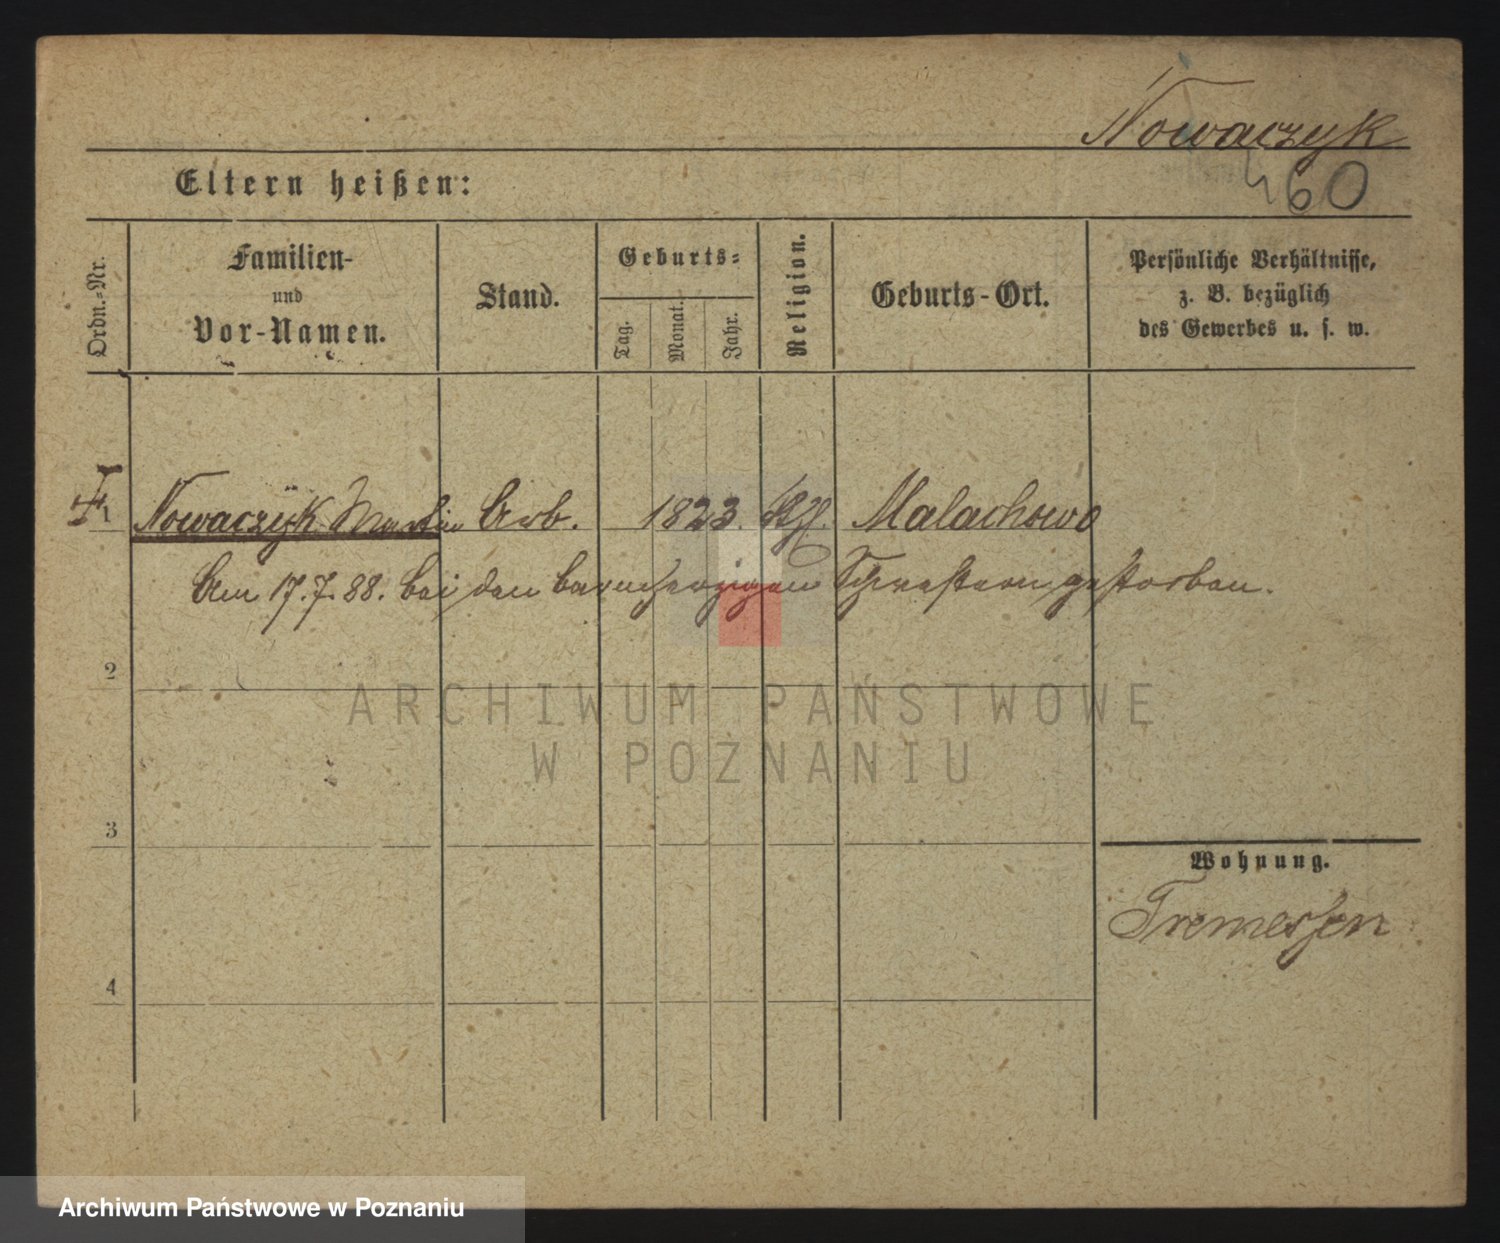 Nowaczyk
460
Eltern heißen:
Ordn.-Nr.
Familien-
und
Vor-Namen.
Stand.
Geburts-
Tag.
Monat.
Jahr.
Religion.
Geburts-Ort.
Persönliche Verhältnisse,
z. B. bezüglich
des Gewerbes u. s. w.
1 Nowaczÿk Martin Arb. 1823. Kth. Malachowo
Am 17.7.88. bei den barmherzigen Schwestern gestorben.
2
ARCHIWUM PAŃSTWOWE
W POZNANIU
3
Wohnung.
Tremessen
4
Archiwum Państwowe w Poznaniu